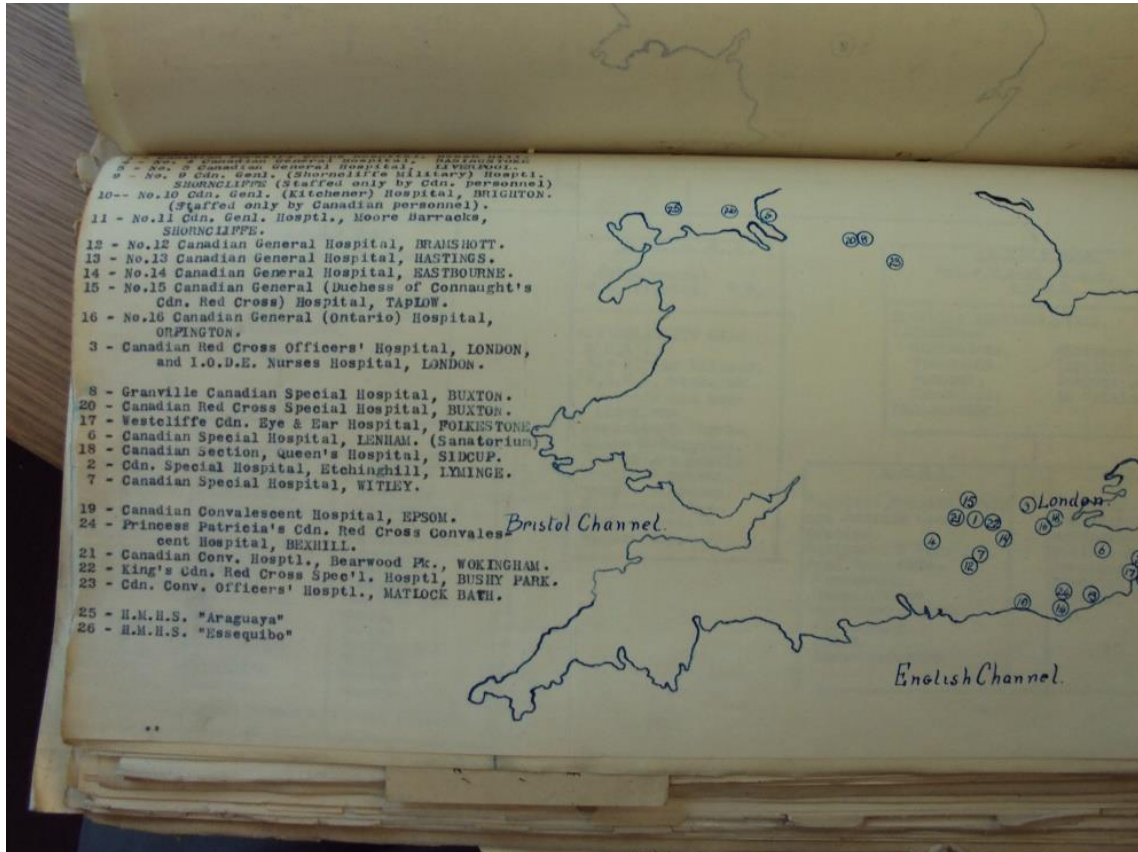 4 - No. 4 Canadian General Hospital, BASINGSTOKE
5 - No. 5 Canadian General Hospital, LIVERPOOL.
9 - No. 9 Cdn. Genl. (Shorncliffe Military) Hosptl.
SHORNCLIFFE (Staffed only by Cdn. personnel)
10-- No.10 Cdn. Genl. (Kitchener) Hospital, BRIGHTON.
(Staffed only by Canadian personnel).
11 - No.11 Cdn. Genl. Hosptl., Moore Barracks,
SHORNCLIFFE.
12 - No.12 Canadian General Hospital, BRAMSHOTT.
13 - No.13 Canadian General Hospital, HASTINGS.
14 - No.14 Canadian General Hospital, EASTBOURNE.
15 - No.15 Canadian General (Duchess of Connaught's
Cdn. Red Cross) Hospital, TAPLOW.
16 - No.16 Canadian General (Ontario) Hospital,
ORPINGTON.
3 - Canadian Red Cross Officers' Hospital, LONDON,
and I.O.D.E. Nurses Hospital, LONDON.
8 - Granville Canadian Special Hospital, BUXTON.
20 - Canadian Red Cross Special Hospital, BUXTON.
17 - Westcliffe Cdn. Eye & Ear Hospital, FOLKESTONE
6 - Canadian Special Hospital, LENHAM. (Sanatorium)
18 - Canadian Section, Queen's Hospital, SIDCUP.
2 - Cdn. Special Hospital, Etchinghill, LYMINGE.
7 - Canadian Special Hospital, WITLEY.
19 - Canadian Convalescent Hospital, EPSOM.
24 - Princess Patricia's Cdn. Red Cross Convales-
cent Hospital, BEXHILL.
21 - Canadian Conv. Hosptl., Bearwood Pk., WOKINGHAM.
22 - King's Cdn. Red Cross Spec'l. Hosptl, BUSHY PARK.
23 - Cdn. Conv. Officers' Hosptl., MATLOCK BATH.
25 - H.M.H.S. "Araguaya"
26 - H.M.H.S. "Essequibo"
25 26 5
20 8
23
15
3 London
21 1 22
16 18
4 19
7 6
12
17
24 13
10 14
Bristol Channel.
English Channel.